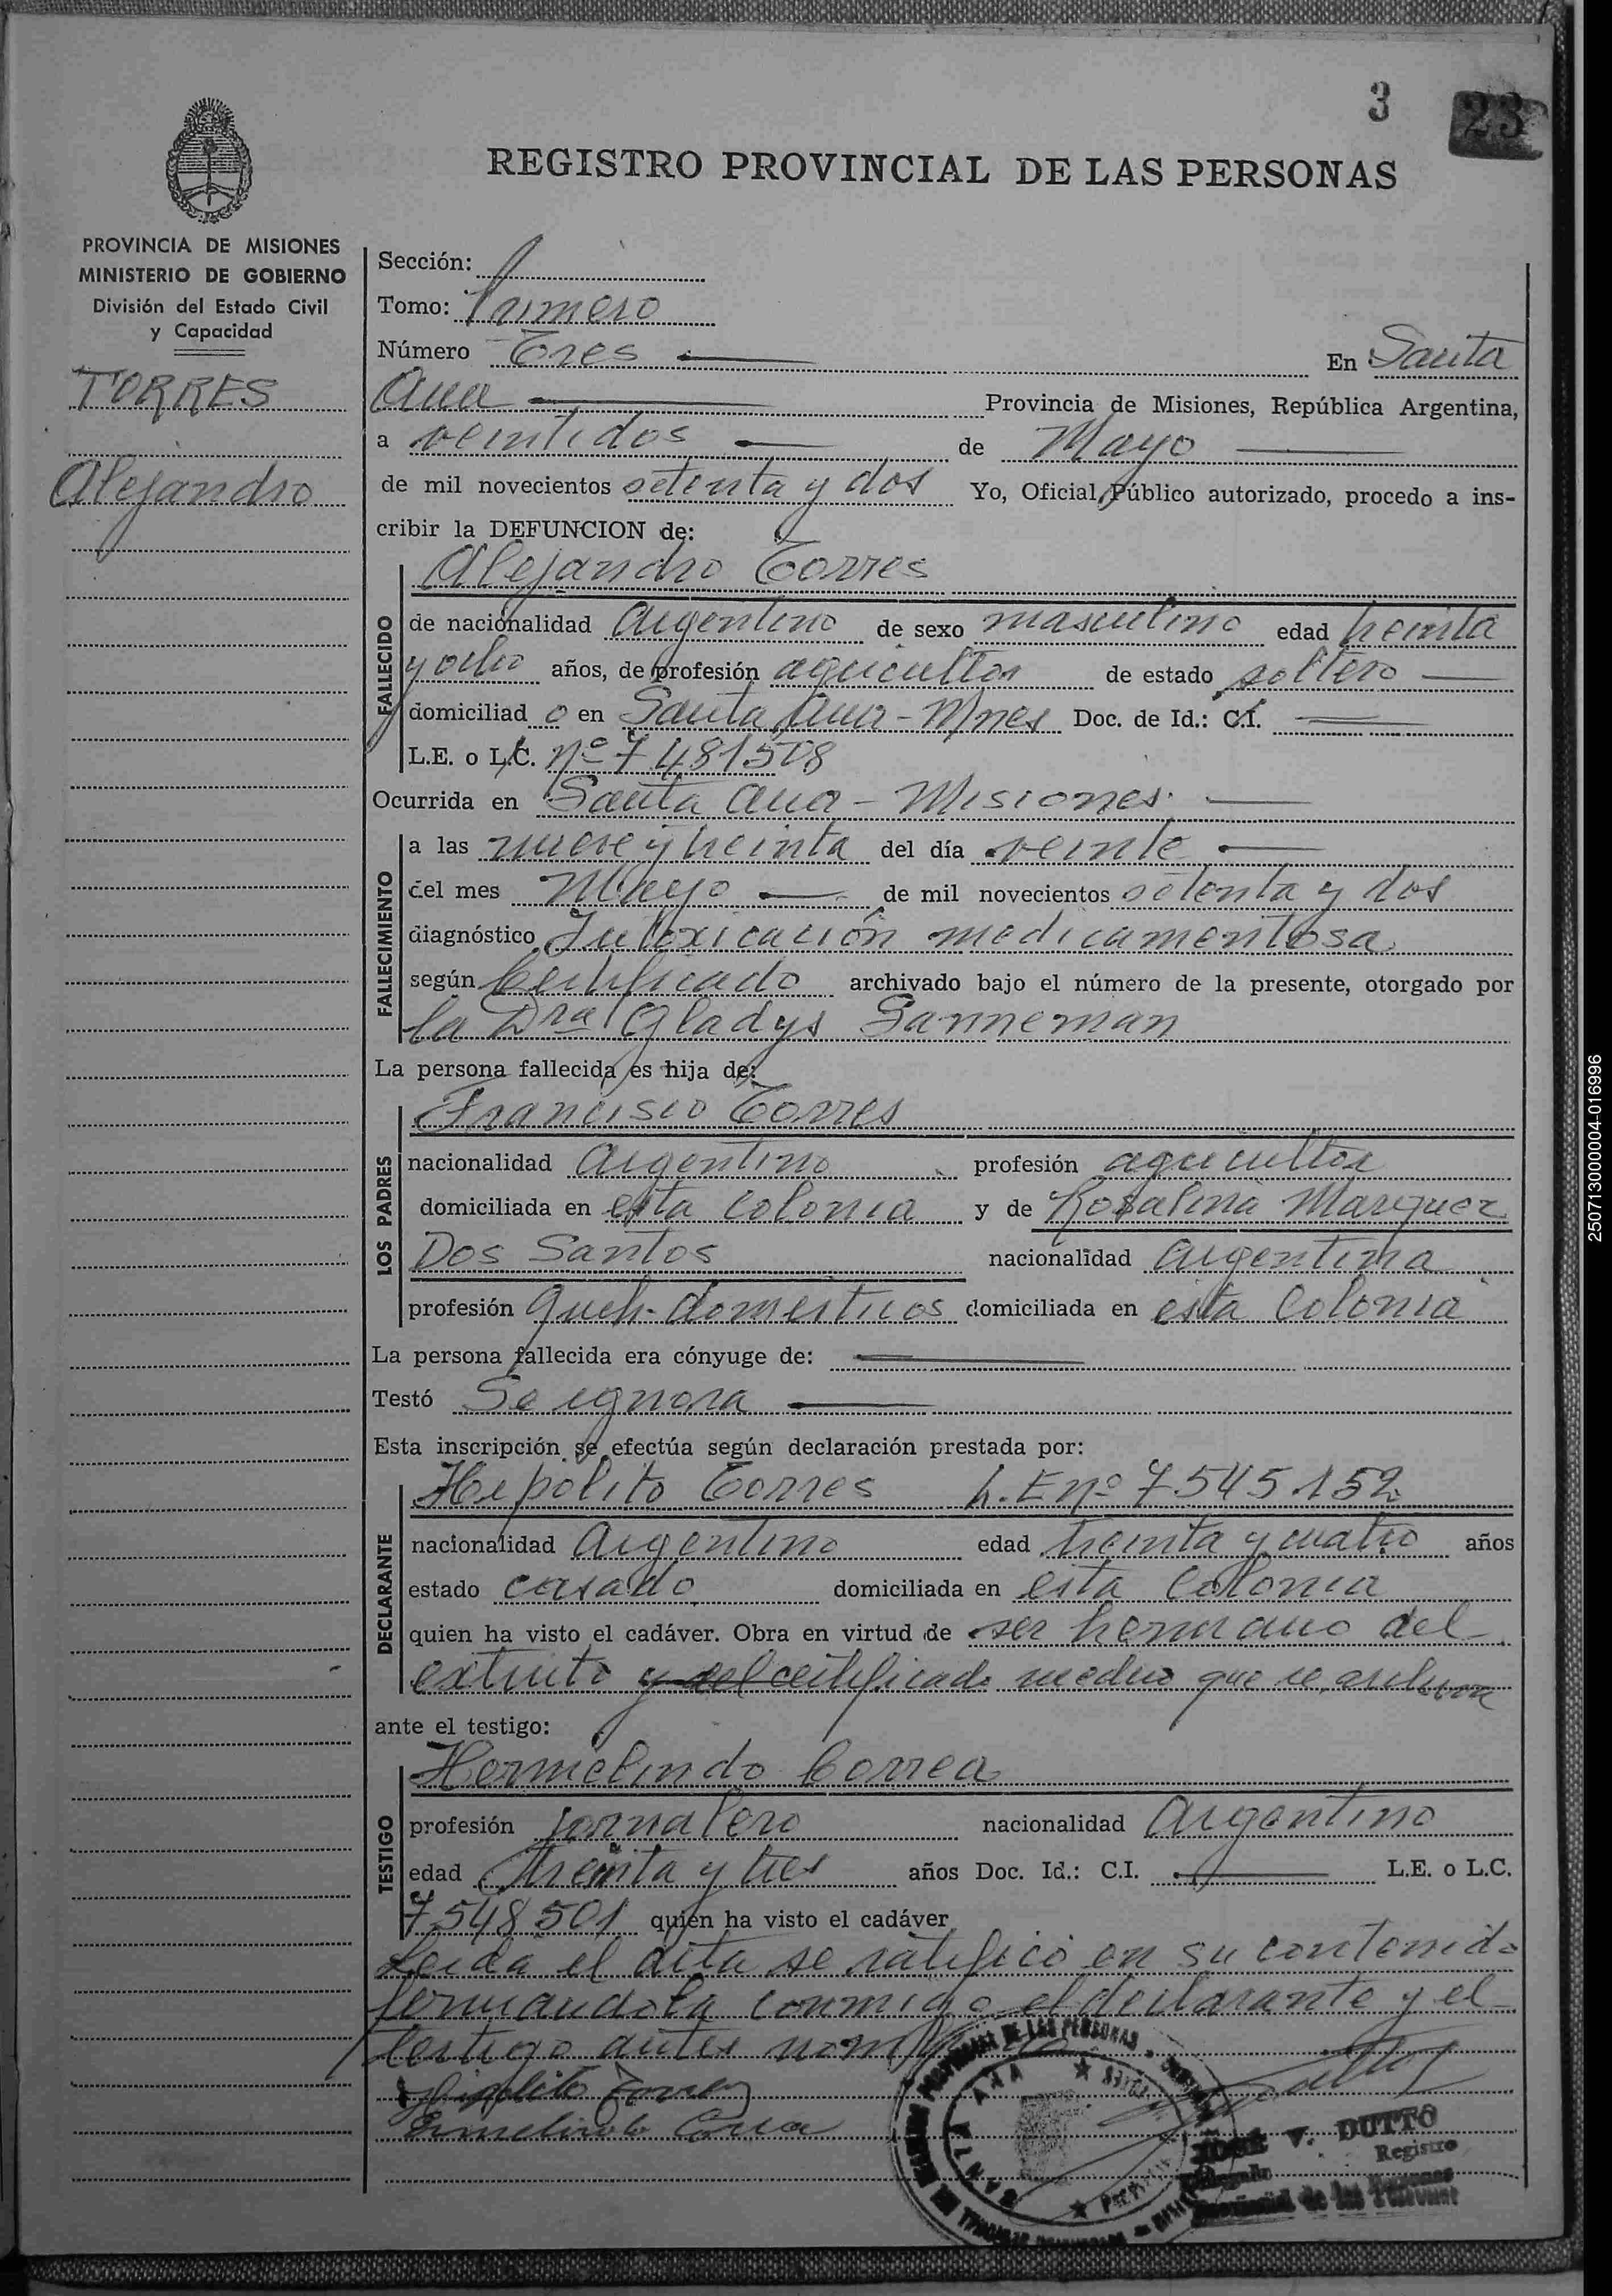 3 23
REGISTRO PROVINCIAL DE LAS PERSONAS
PROVINCIA DE MISIONES
MINISTERIO DE GOBIERNO
División del Estado Civil
y Capacidad
TORRES
Alejandro
Sección:
Tomo: Primero
Número Tres En Santa
Ana Provincia de Misiones, República Argentina,
a veintidos de Mayo
de mil novecientos setenta y dos Yo, Oficial Público autorizado, procedo a ins-
cribir la DEFUNCION de:
Alejandro Torres
FALLECIDO
de nacionalidad Argentino de sexo masculino edad treinta
y ocho años, de profesión agricultor de estado soltero
domiciliad o en Santa Ana - Mnes Doc. de Id.: C.I.
L.E. o L.C. Nº 7481508
Ocurrida en Santa Ana - Misiones.
FALLECIMIENTO
a las nueve y treinta del día veinte
del mes Mayo de mil novecientos setenta y dos
diagnóstico Intoxicación medicamentosa
según Certificado archivado bajo el número de la presente, otorgado por
la Dra Gladys Sanneman
La persona fallecida es hija de:
LOS PADRES
Francisco Torres
nacionalidad Argentino profesión agricultor
domiciliada en esta Colonia y de Rosalina Marquez
Dos Santos nacionalidad Argentina
profesión Queh. domesticos domiciliada en esta Colonia
La persona fallecida era cónyuge de:
Testó Se ignora
Esta inscripción se efectúa según declaración prestada por:
DECLARANTE
Hipolito Torres L.E nº 7545152
nacionalidad Argentino edad treinta y cuatro años
estado casado domiciliada en esta Colonia
quien ha visto el cadáver. Obra en virtud de ser hermano del
extinto y del certificado medico que se archiva
ante el testigo:
TESTIGO
Hermelindo Correa
profesión jornalero nacionalidad Argentino
edad treinta y tres años Doc. Id.: C.I. L.E. o L.C.
7548501 quien ha visto el cadáver.
Leida el acta se ratificó en su contenido
firmandola conmigo el declarante y el
testigo antes
Hipolito Torres
Ermelindo Correa
SANTA ANA
JOSÉ V. DUTTO
Registro
Provincial de las Personas
2507130000004-016996